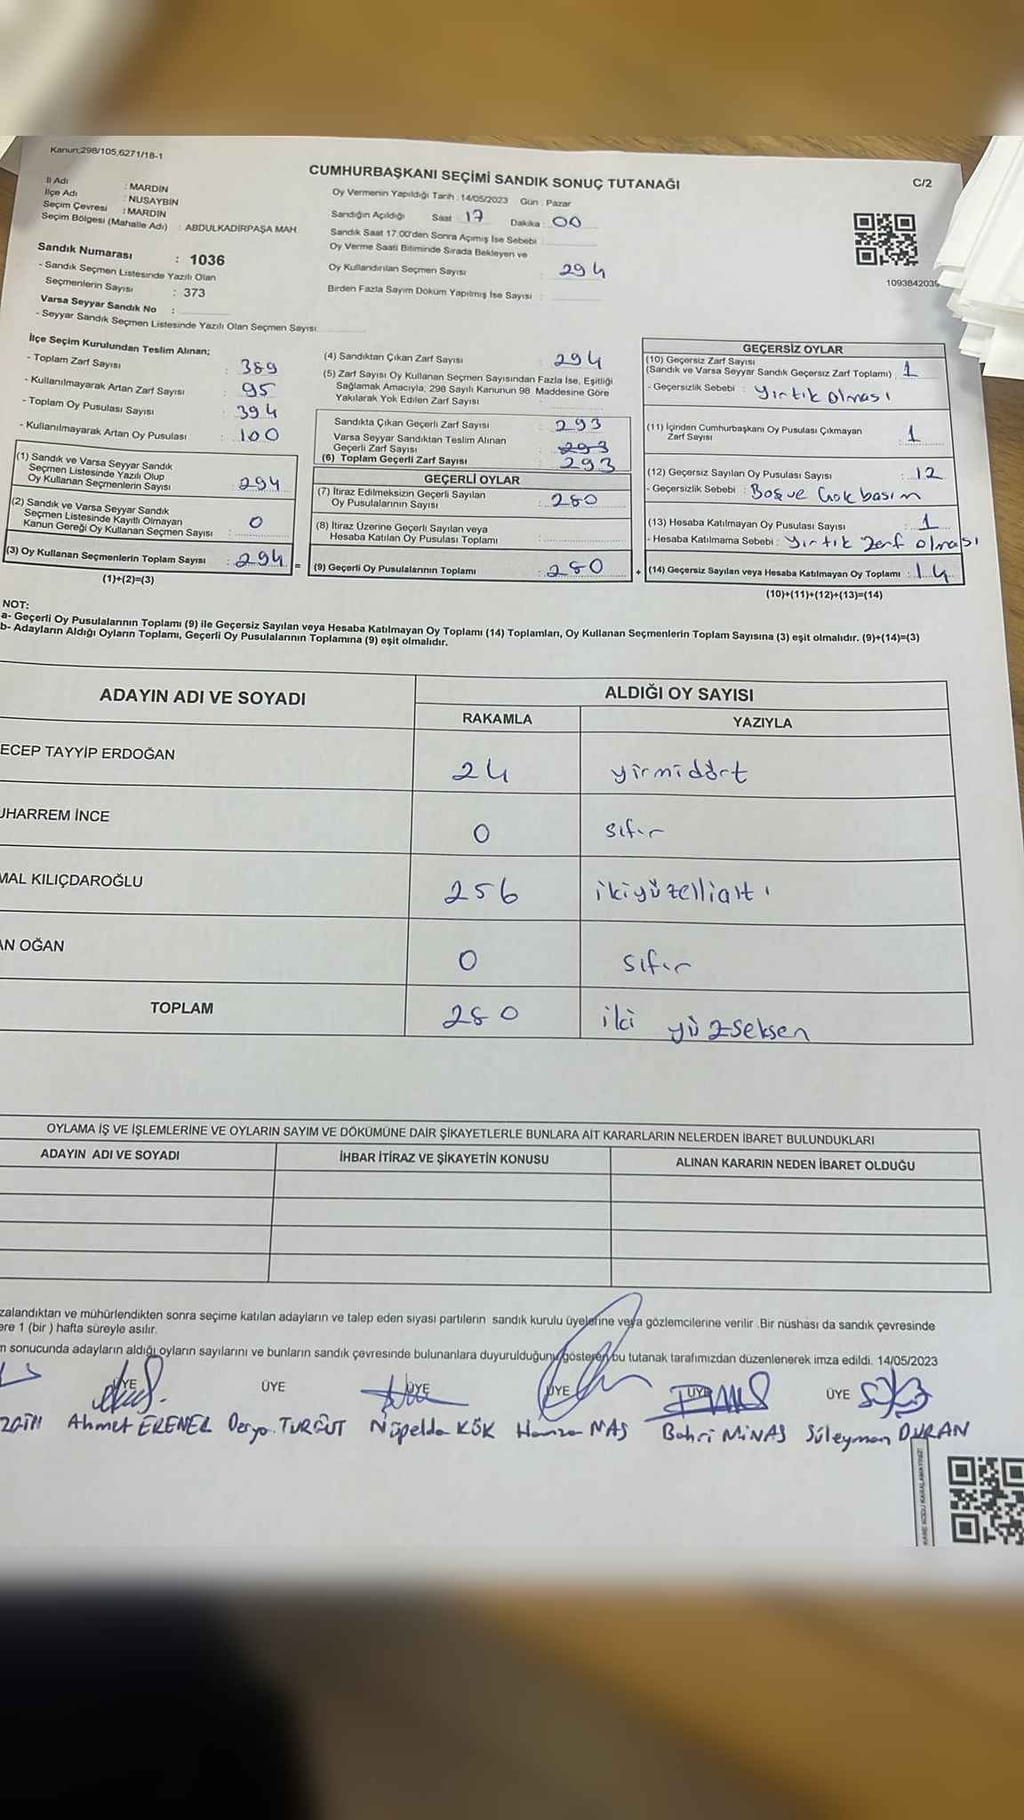 Kanun;298/105,6271/18-1
CUMHURBAŞKANI SEÇİMİ SANDIK SONUÇ TUTANAĞI
C/2
İl Adı : MARDİN
İlçe Adı : NUSAYBİN
Seçim Çevresi : MARDİN
Seçim Bölgesi (Mahalle Adı) : ABDULKADİRPAŞA MAH.
Sandık Numarası : 1036
- Sandık Seçmen Listesinde Yazılı Olan
Seçmenlerin Sayısı : 373
Varsa Seyyar Sandık No :
- Seyyar Sandık Seçmen Listesinde Yazılı Olan Seçmen Sayısı
Oy Vermenin Yapıldığı Tarih : 14/05/2023 Gün : Pazar
Sandığın Açıldığı Saat 17 Dakika : 00
Sandık Saat 17.00'den Sonra Açımış İse Sebebi
Oy Verme Saati Bitiminde Sırada Bekleyen ve
Oy Kullandırılan Seçmen Sayısı : 294
Birden Fazla Sayım Döküm Yapılmış İse Sayısı :
İlçe Seçim Kurulundan Teslim Alınan;
- Toplam Zarf Sayısı : 389
- Kullanılmayarak Artan Zarf Sayısı : 95
- Toplam Oy Pusulası Sayısı : 394
- Kullanılmayarak Artan Oy Pusulası : 100
(1) Sandık ve Varsa Seyyar Sandık
Seçmen Listesinde Yazılı Olup
Oy Kullanan Seçmenlerin Sayısı : 294
(2) Sandık ve Varsa Seyyar Sandık
Seçmen Listesinde Kayıtlı Olmayan
Kanun Gereği Oy Kullanan Seçmen Sayısı : 0
(3) Oy Kullanan Seçmenlerin Toplam Sayısı : 294 =
(1)+(2)=(3)
(4) Sandıktan Çıkan Zarf Sayısı : 294
(5) Zarf Sayısı Oy Kullanan Seçmen Sayısından Fazla İse, Eşitliği
Sağlamak Amacıyla, 298 Sayılı Kanunun 98. Maddesine Göre
Yakılarak Yok Edilen Zarf Sayısı
Sandıkta Çıkan Geçerli Zarf Sayısı : 293
Varsa Seyyar Sandıktan Teslim Alınan
Geçerli Zarf Sayısı : 293
(6) Toplam Geçerli Zarf Sayısı : 293
GEÇERLİ OYLAR
(7) İtiraz Edilmeksizin Geçerli Sayılan
Oy Pusulalarının Sayısı : 280
(8) İtiraz Üzerine Geçerli Sayılan veya
Hesaba Katılan Oy Pusulası Toplamı :
(9) Geçerli Oy Pusulalarının Toplamı : 280 +
GEÇERSİZ OYLAR
(10) Geçersiz Zarf Sayısı
(Sandık ve Varsa Seyyar Sandık Geçersiz Zarf Toplamı) : 1
- Geçersizlik Sebebi : Yırtık olması
(11) İçinden Cumhurbaşkanı Oy Pusulası Çıkmayan
Zarf Sayısı : 1
(12) Geçersiz Sayılan Oy Pusulası Sayısı : 12
- Geçersizlik Sebebi : Boş ve Çok basım
(13) Hesaba Katılmayan Oy Pusulası Sayısı : 1
- Hesaba Katılmama Sebebi : Yırtık Zarf olması
(14) Geçersiz Sayılan veya Hesaba Katılmayan Oy Toplamı : 14
(10)+(11)+(12)+(13)=(14)
NOT:
a- Geçerli Oy Pusulalarının Toplamı (9) ile Geçersiz Sayılan veya Hesaba Katılmayan Oy Toplamı (14) Toplamları, Oy Kullanan Seçmenlerin Toplam Sayısına (3) eşit olmalıdır. (9)+(14)=(3)
b- Adayların Aldığı Oyların Toplamı, Geçerli Oy Pusulalarının Toplamına (9) eşit olmalıdır.
ADAYIN ADI VE SOYADI
ALDIĞI OY SAYISI
RAKAMLA YAZIYLA
ECEP TAYYİP ERDOĞAN 24 yirmidört
UHARREM İNCE 0 sıfır
MAL KILIÇDAROĞLU 256 ikiyüzellialtı
AN OĞAN 0 sıfır
TOPLAM 280 iki yüzseksen
OYLAMA İŞ VE İŞLEMLERİNE VE OYLARIN SAYIM VE DÖKÜMÜNE DAİR ŞİKAYETLERLE BUNLARA AİT KARARLARIN NELERDEN İBARET BULUNDUKLARI
ADAYIN ADI VE SOYADI İHBAR İTİRAZ VE ŞİKAYETİN KONUSU ALINAN KARARIN NEDEN İBARET OLDUĞU
zalandıktan ve mühürlendikten sonra seçime katılan adayların ve talep eden siyasi partilerin sandık kurulu üyelerine veya gözlemcilerine verilir .Bir nüshası da sandık çevresinde
ere 1 (bir ) hafta süreyle asılır.
n sonucunda adayların aldığı oyların sayılarını ve bunların sandık çevresinde bulunanlara duyurulduğunu gösteren bu tutanak tarafımızdan düzenlenerek imza edildi. 14/05/2023
ÜYE ÜYE ÜYE ÜYE ÜYE
Ahmet ERENEL Derya TURGUT Nüpelda KÖK Hamza NAS Bahri MİNAS Süleyman DURAN